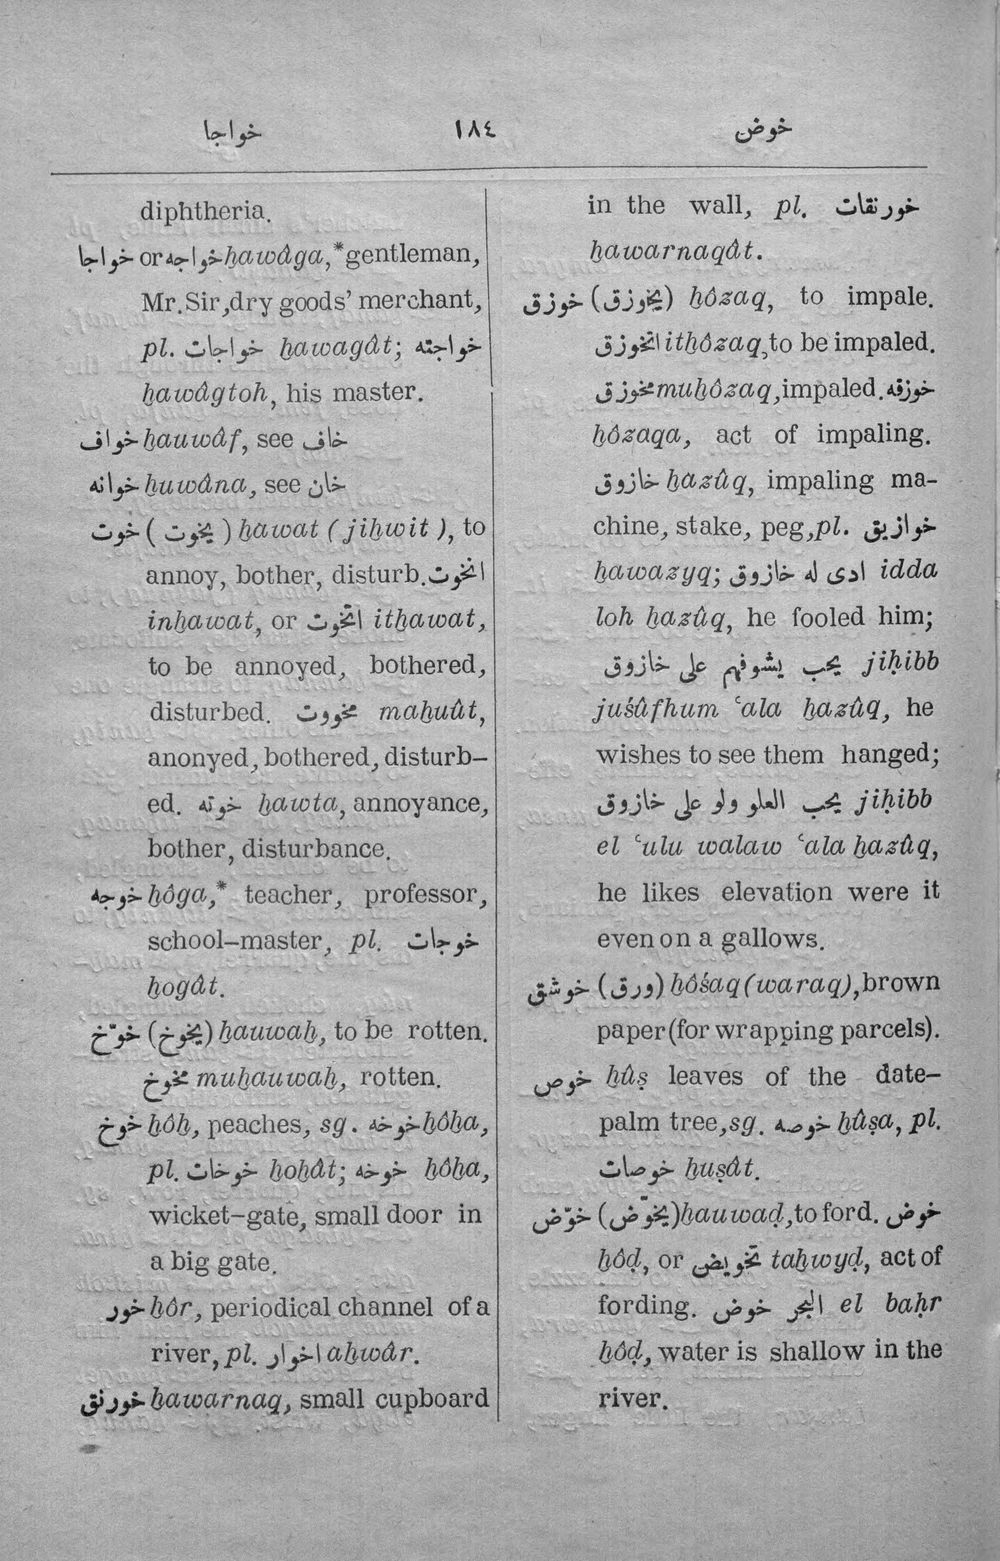 خواجا ١٨٤ خوض
diphtheria.
خواجا or خواجه ḫawâga,*gentleman,
Mr. Sir, dry goods’ merchant,
pl. خواجات ḫawagât; خواجته
ḫawâgtoh, his master.
خواف ḫauwâf, see خاف
خوانه ḫuwâna, see خان
خوت (يخوت) ḫawat (jiḫwit), to
annoy, bother, disturb. انخوت
inḫawat, or اتخوت itḫawat,
to be annoyed, bothered,
disturbed. مخووت maḫuût,
anonyed, bothered, disturb–
ed. خوته ḫawta, annoyance,
bother, disturbance.
خوجه ḫôga,* teacher, professor,
school–master, pl. خوجات
ḫogât.
خوّخ (يخوخ) ḫauwaḫ, to be rotten.
مخوخ muḫauwaḫ, rotten.
خوخ ḫôḫ, peaches, sg. خوخه ḫôḫa,
pl. خوخات ḫoḫât; خوخه ḫôḫa,
wicket–gate, small door in
a big gate.
خور ḫôr, periodical channel of a
river, pl. اخوار aḫwâr.
خورنق ḫawarnaq, small cupboard
in the wall, pl. خورنقات
ḫawarnaqât.
خوزق (يخاوزق) ḫôzaq, to impale.
اتخوزق itḫôzaq, to be impaled.
مخوزق muḫôzaq, impaled. خوزقه
ḫôzaqa, act of impaling.
خازوق ḫazûq, impaling ma–
chine, stake, peg, pl. خوازيق
ḫawazyq; ادى له خازوق idda
loh ḫazûq, he fooled him;
يحب يشوفهم على خازوق jiḥibb
juśûfhum ʿala ḫazûq, he
wishes to see them hanged;
يحب العلو ولو على خازوق jiḥibb
el ʿulu walaw ʿala ḫazûq,
he likes elevation were it
even on a gallows.
خوشق (ورق) ḫôśaq (waraq), brown
paper (for wrapping parcels).
خوص ḫûṣ leaves of the date–
palm tree, sg. خوصه ḫûṣa, pl.
خوصات ḫuṣât.
خوّض (يخوّض) ḫauwaḍ, to ford. خوض
ḫôḍ, or تخويض taḫwyḍ, act of
fording. البحر خوض el baḥr
ḫôḍ, water is shallow in the
river.